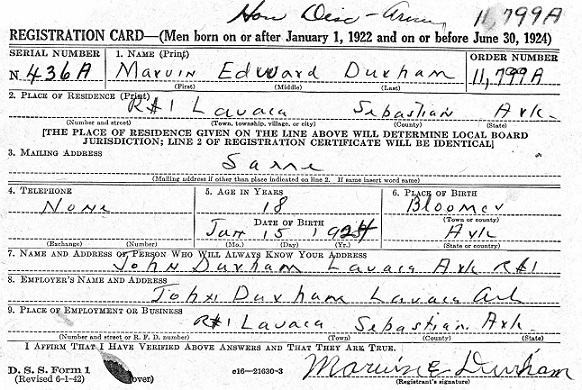 Hon Disc - Army 11,799A
REGISTRATION CARD—(Men born on or after January 1, 1922 and on or before June 30, 1924)
SERIAL NUMBER 1. NAME (Print) ORDER NUMBER
N 436A Marvin Edward Durham 11,799A
(First) (Middle) (Last)
2. PLACE OF RESIDENCE (Print)
R#1 Lavaca Sebastian Ark
(Number and street) (Town, township, village, or city) (County) (State)
[THE PLACE OF RESIDENCE GIVEN ON THE LINE ABOVE WILL DETERMINE LOCAL BOARD
JURISDICTION; LINE 2 OF REGISTRATION CERTIFICATE WILL BE IDENTICAL]
3. MAILING ADDRESS
Same
(Mailing address if other than place indicated on line 2. If same insert word same)
4. TELEPHONE 5. AGE IN YEARS 6. PLACE OF BIRTH
None 18 Bloomer
DATE OF BIRTH (Town or county)
Jan 15 1924 Ark
(Exchange) (Number) (Mo.) (Day) (Yr.) (State or country)
7. NAME AND ADDRESS OF PERSON WHO WILL ALWAYS KNOW YOUR ADDRESS
John Durham Lavaca Ark R#1
8. EMPLOYER'S NAME AND ADDRESS
John Durham Lavaca Ark
9. PLACE OF EMPLOYMENT OR BUSINESS
R#1 Lavaca Sebastian Ark
(Number and street or R. F. D. number) (Town) (County) (State)
I AFFIRM THAT I HAVE VERIFIED ABOVE ANSWERS AND THAT THEY ARE TRUE.
D. S. S. Form 1
(Revised 6-1-42) (over) c16—21630-3 Marvin E Durham
(Registrant's signature)